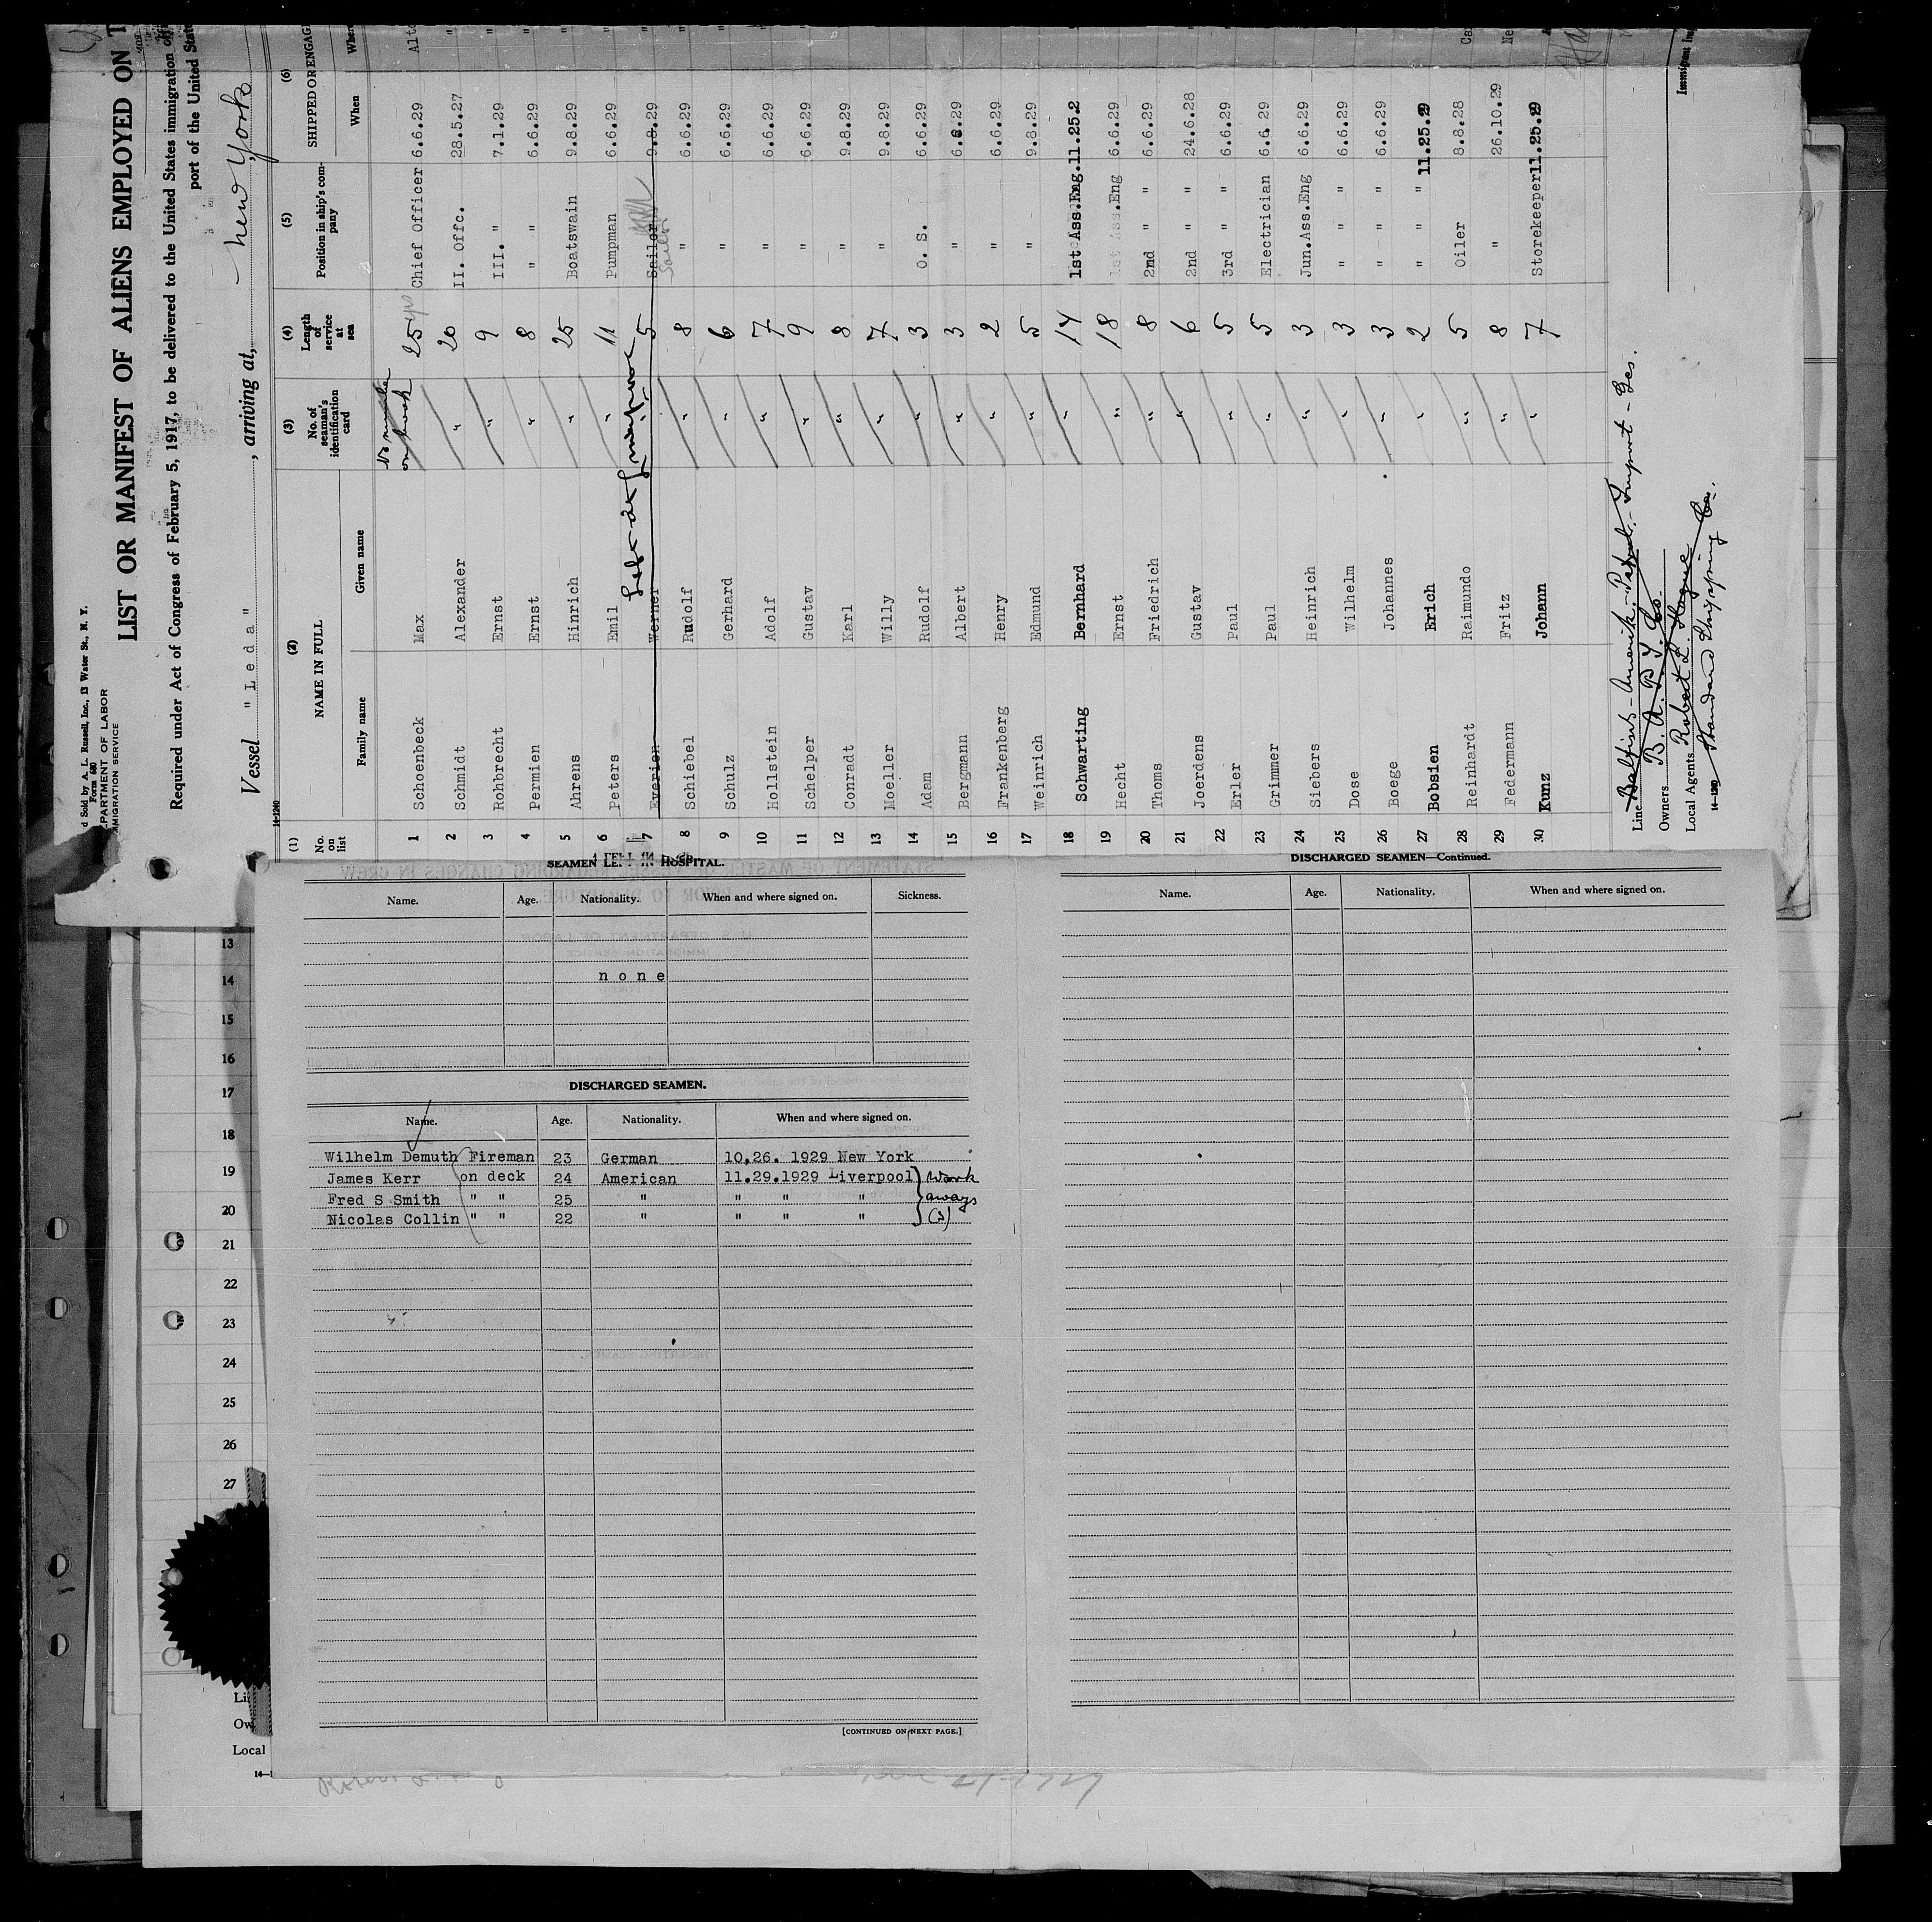 d Sold by A. L. Russell, Inc., 13 Water St., N. Y.
Form 680
DEPARTMENT OF LABOR
IMMIGRATION SERVICE
LIST OR MANIFEST OF ALIENS EMPLOYED ON T
Required under Act of Congress of February 5, 1917, to be delivered to the United States immigration off
port of the United State
Vessel "Leda", arriving at, New York
14-1240
(1) (2) (3) (4) (5) (6)
No. on list NAME IN FULL No. of seaman's identification card Length of service at sea Position in ship's company SHIPPED OR ENGAG
Family name Given name When Where
1 Schoenbeck Max 25 yrs Chief Officer 6.6.29
2 Schmidt Alexander " 20 II. Offc. 28.5.27 "
3 Rohbrecht Ernst " 9 III. " 7.1.29 "
4 Permien Ernst " 8 " " 6.6.29 "
5 Ahrens Hinrich " 25 Boatswain 9.8.29 "
6 Peters Emil " 11 Pumpman 6.6.29 "
7 Everien Werner " 5 Sailor 9.8.29 "
8 Schiebel Rudolf " 8 " 6.6.29 "
9 Schulz Gerhard " 6 " 6.6.29 "
10 Hollstein Adolf " 7 " 6.6.29 "
11 Schelper Gustav " 9 " 6.6.29 "
12 Conradt Karl " 8 " 9.8.29 "
13 Moeller Willy " 7 " 9.8.29 "
14 Adam Rudolf " 3 O. S. 6.6.29 "
15 Bergmann Albert " 3 " 6.6.29 "
16 Frankenberg Henry " 2 " 6.6.29 "
17 Weinrich Edmund " 5 " 9.8.29 "
18 Schwarting Bernhard " 14 1st Ass.Eng. 11.25.2
19 Hecht Ernst " 18 1st Ass.Eng 6.6.29 "
20 Thoms Friedrich " 8 2nd " " 6.6.29 "
21 Joerdens Gustav " 6 2nd " " 24.6.28 "
22 Erler Paul " 5 3rd " " 6.6.29 "
23 Grimmer Paul " 5 Electrician 6.6.29 "
24 Siebers Heinrich " 3 Jun.Ass.Eng 6.6.29 "
25 Dose Wilhelm " 3 " " " 6.6.29 "
26 Boege Johannes " 3 " " " 6.6.29 "
27 Bobsien Erich " 2 " " " 11.25.29
28 Reinhardt Raimundo " 5 Oiler 8.8.28 Ca
29 Federmann Fritz " 8 " 26.10.29 Ne
30 Kunz Johann " 7 Storekeeper 11.25.29
Line Import-Ges.
Owners B. A. P. I. G.
Local Agents Robert L. Hague
Standard Shipping Co.
Immigrant Ins
SEAMEN LEFT IN HOSPITAL.
Name. Age. Nationality. When and where signed on. Sickness.
none
DISCHARGED SEAMEN.
Name. Age. Nationality. When and where signed on.
Wilhelm Demuth Fireman 23 German 10.26. 1929 New York
James Kerr on deck 24 American 11.29.1929 Liverpool Work
Fred S Smith " " 25 " " " " aways
Nicolas Collin " " 22 " " " " (3)
[CONTINUED ON NEXT PAGE.]
DISCHARGED SEAMEN—Continued.
Name. Age. Nationality. When and where signed on.
13
14
15
16
17
18
19
20
21
22
23
24
25
26
27
Li
Ow
Local
14—1